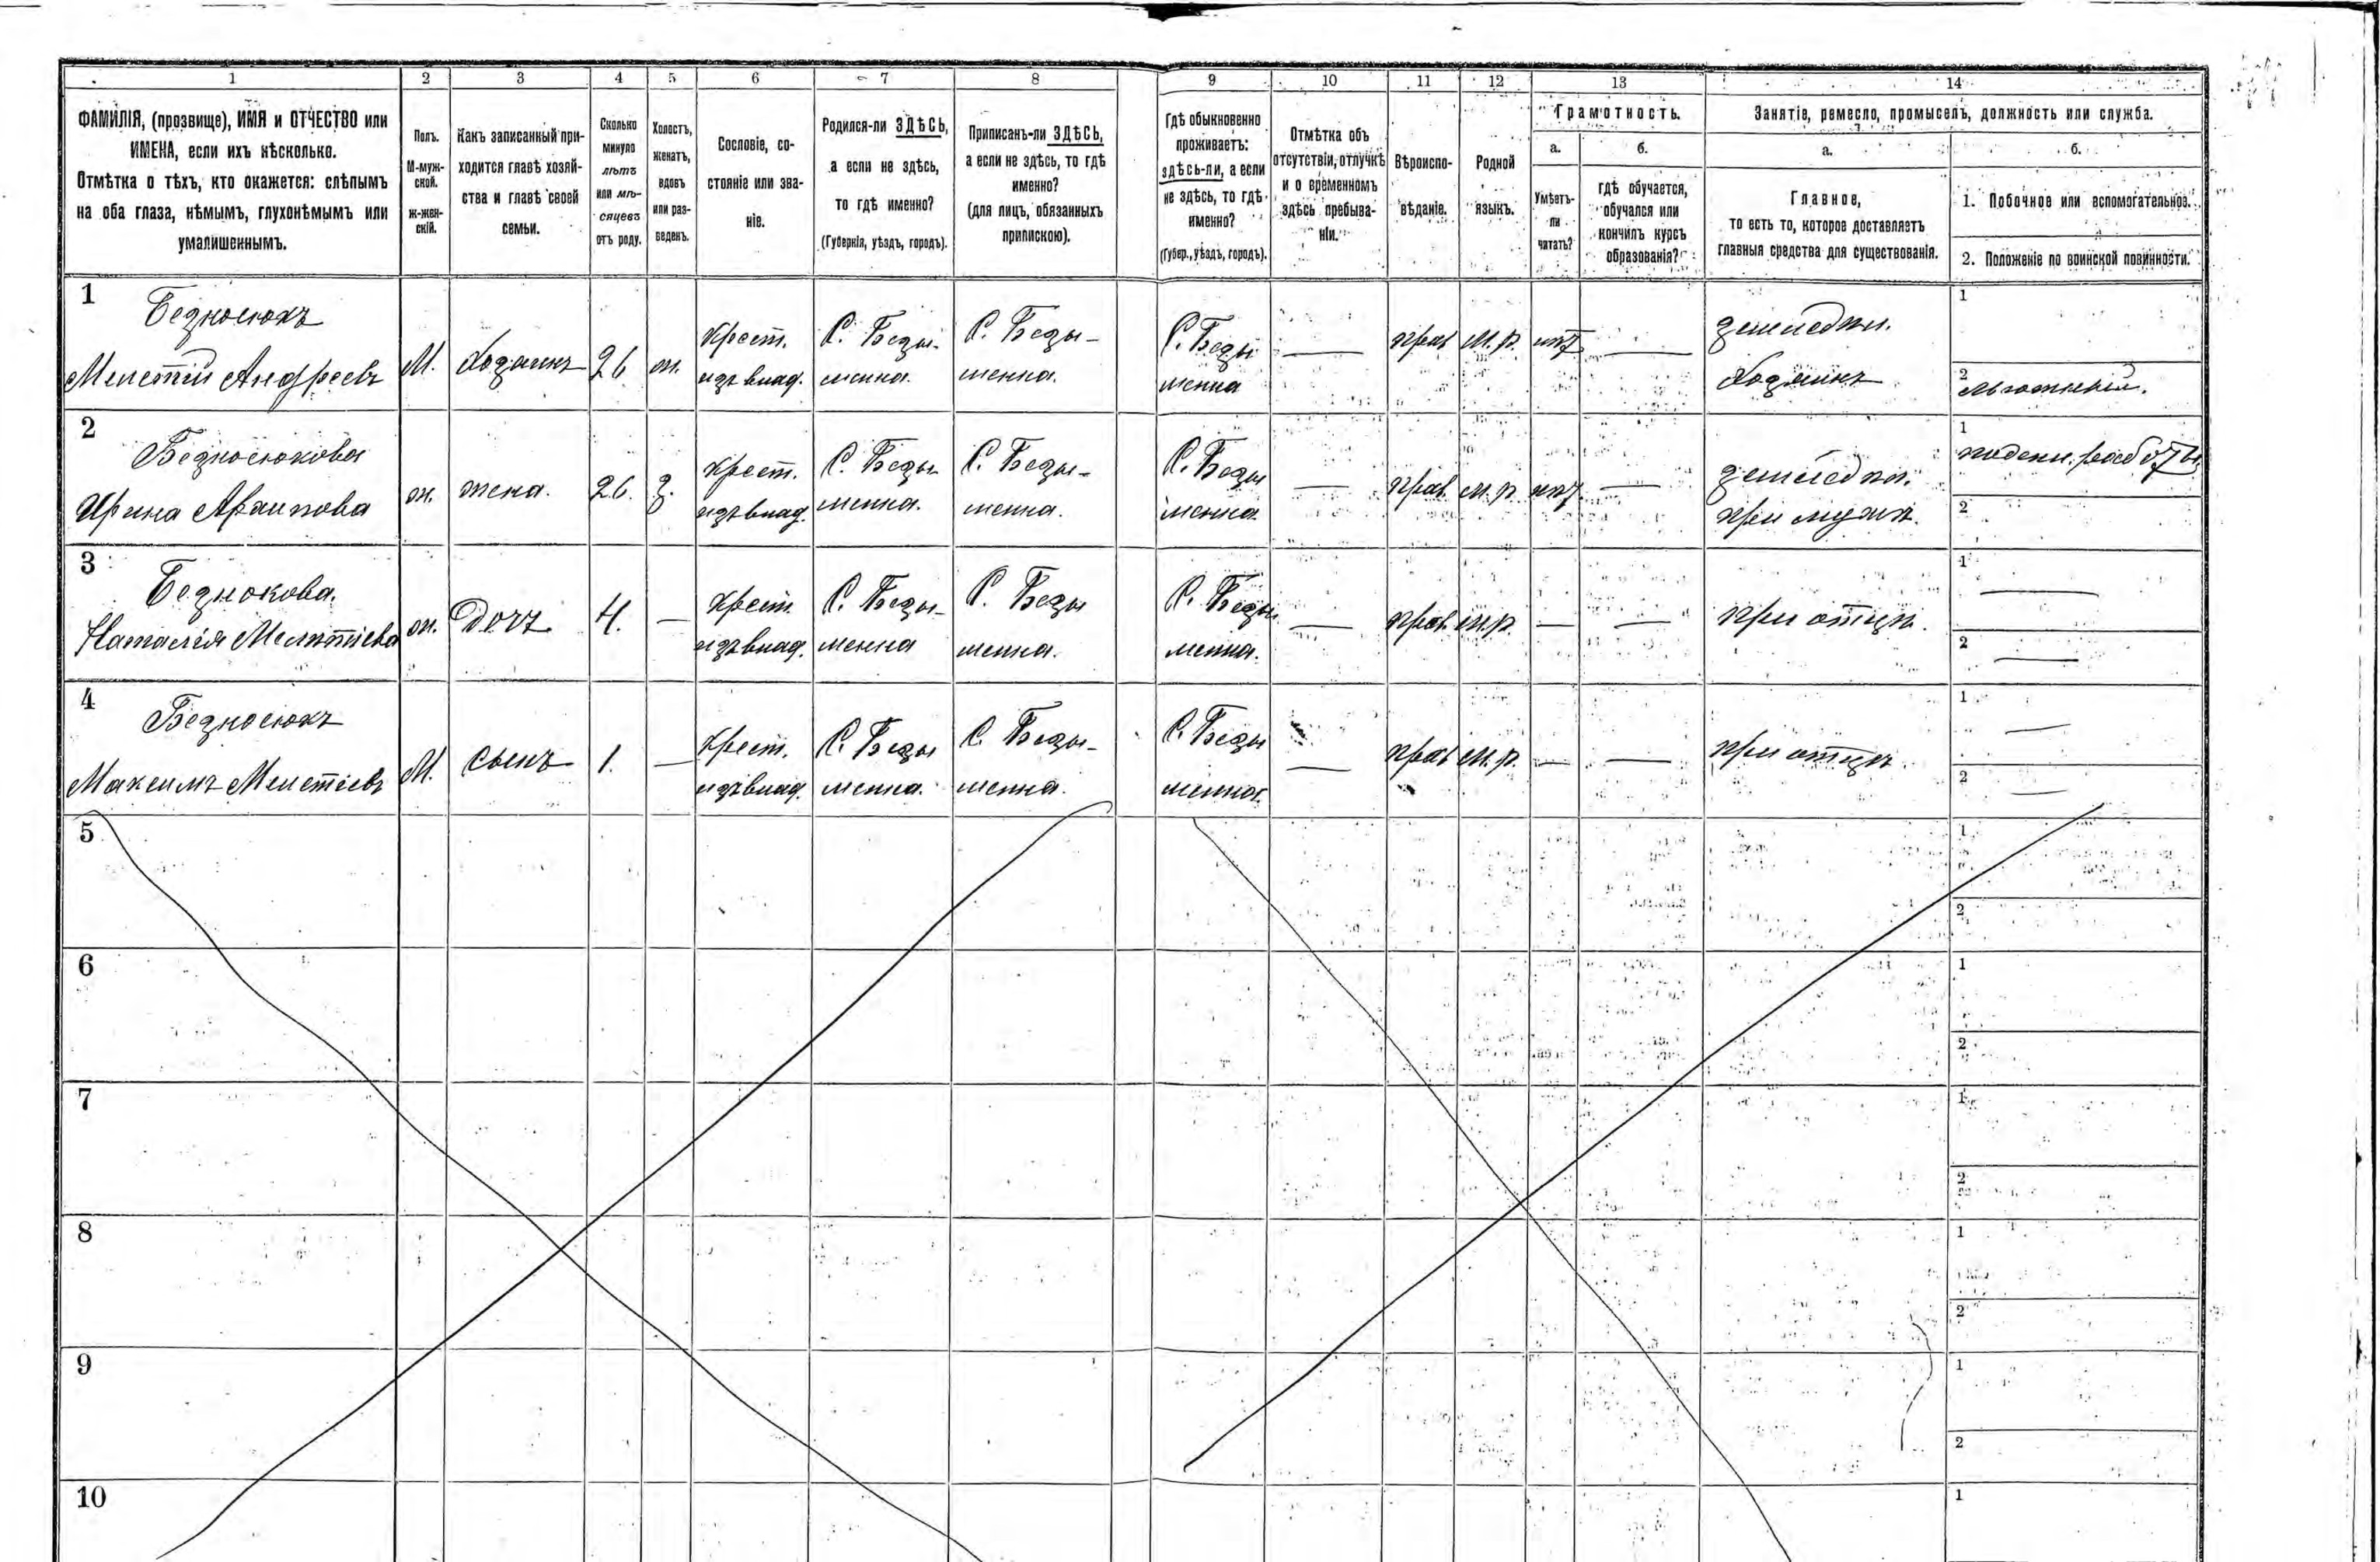 1 2 3 4 5 6 7 8 9 10 11 12 13 14
ФАМИЛІЯ, (прозвище), ИМЯ и ОТЧЕСТВО или
ИМЕНА, если ихъ нѣсколько.
Отмѣтка о тѣхъ, кто окажется: слѣпымъ
на оба глаза, нѣмымъ, глухонѣмымъ или
умалишеннымъ.
Полъ.
М-муж-
ской.
ж-жен-
скій.
Какъ записанный при-
ходится главѣ хозяй-
ства и главѣ своей
семьи.
Сколько
минуло
лѣтъ
или мѣ-
сяцевъ
отъ роду.
Холостъ,
женатъ,
вдовъ
или раз-
веденъ.
Сословіе, со-
стояніе или зва-
ніе.
Родился-ли ЗДѢСЬ,
а если не здѣсь,
то гдѣ именно?
(Губернія, уѣздъ, городъ).
Приписанъ-ли ЗДѢСЬ,
а если не здѣсь, то гдѣ
именно?
(для лицъ, обязанныхъ
припискою).
Гдѣ обыкновенно
проживаетъ:
здѣсь-ли, а если
не здѣсь, то гдѣ
именно?
(Губер., уѣздъ, городъ).
Отмѣтка объ
отсутствіи, отлучкѣ
и о временномъ
здѣсь пребыва-
ніи.
Вѣроиспо-
вѣданіе.
Родной
языкъ.
Грамотность.
а.
Умѣетъ-
ли
читать?
б.
гдѣ обучается,
обучался или
кончилъ курсъ
образованія?
Занятіе, ремесло, промыселъ, должность или служба.
а.
Главное,
то есть то, которое доставляетъ
главныя средства для существованія.
б.
1. Побочное или вспомогательное.
2. Положеніе по воинской повинности.
1
Безносюкъ
Мелетій Андреевъ
М.
хозяинъ
26
ж.
крест.
изъ влад.
С. Безы-
менна.
С. Безы-
менна.
С. Безы
менна
—
прав
м. р.
нѣт
—
земледѣл.
хозяинъ
1
2
льготный.
2
Безносюкова
Ирина Архипова
ж.
жена.
26.
з.
крест.
изъ влад.
С. Безы
менна.
С. Безы-
менна.
С. Безы
менна
—
прав.
м. р
нѣт
—
земледѣл.
при мужѣ.
1
поден. работы
2
3
Безнокова.
Наталія Мелетіева
ж.
дочь
4.
—
крест.
изъ влад.
С. Безы-
менна
С. Безы
менна.
С. Безы
менна.
—
прав.
м. р.
—
—
при отцѣ.
1
—
2
—
4
Безносюкъ
Максимъ Мелетіевъ
М.
сынъ
1.
—
крест.
изъ влад.
С. Безы
менна.
С. Безы-
менна.
С. Безы
менна.
—
прав
м. р.
—
—
при отцѣ.
1
—
2
—
5
1
2
6
1
2
7
1
2
8
1
2
9
1
2
10
1